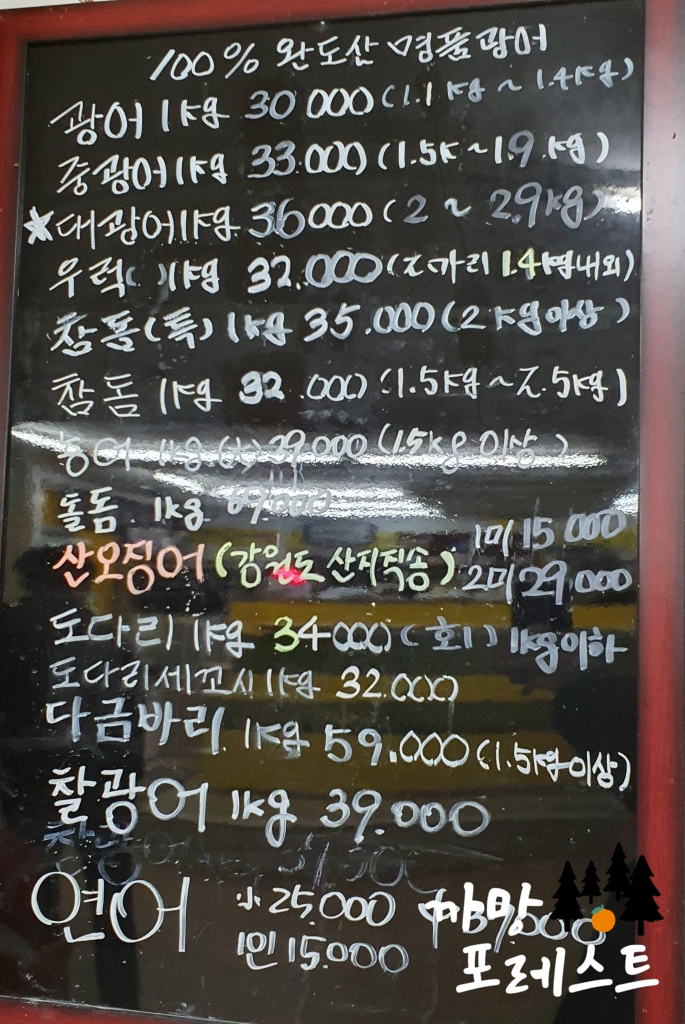 100% 완도산 명품광어
광어 1kg 30000 (1.1kg ~ 1.4kg)
중광어 1kg 33.000 (1.5k ~ 1.9kg)
★대광어 1kg 36000 (2 ~ 2.9kg)
우럭( ) 1kg 32.000 (가리 1.4kg내외)
참돔(특) 1kg 35.000 (2kg이상)
참돔 1kg 32.000 (1.5kg ~ 5kg)
농어 1kg 39000 (1.5kg이상)
돌돔. 1kg 69.000
산오징어 (강원도 산지직송) 1미 15000
2미 29000
도다리 1kg 34000 (회) 1kg이하
도다리세꼬시 1kg 32.000
다금바리. 1kg 59.000 (1.5kg이상)
찰광어 1kg 39.000
연어 小 25.000
1인 15.000
까망
포레스트